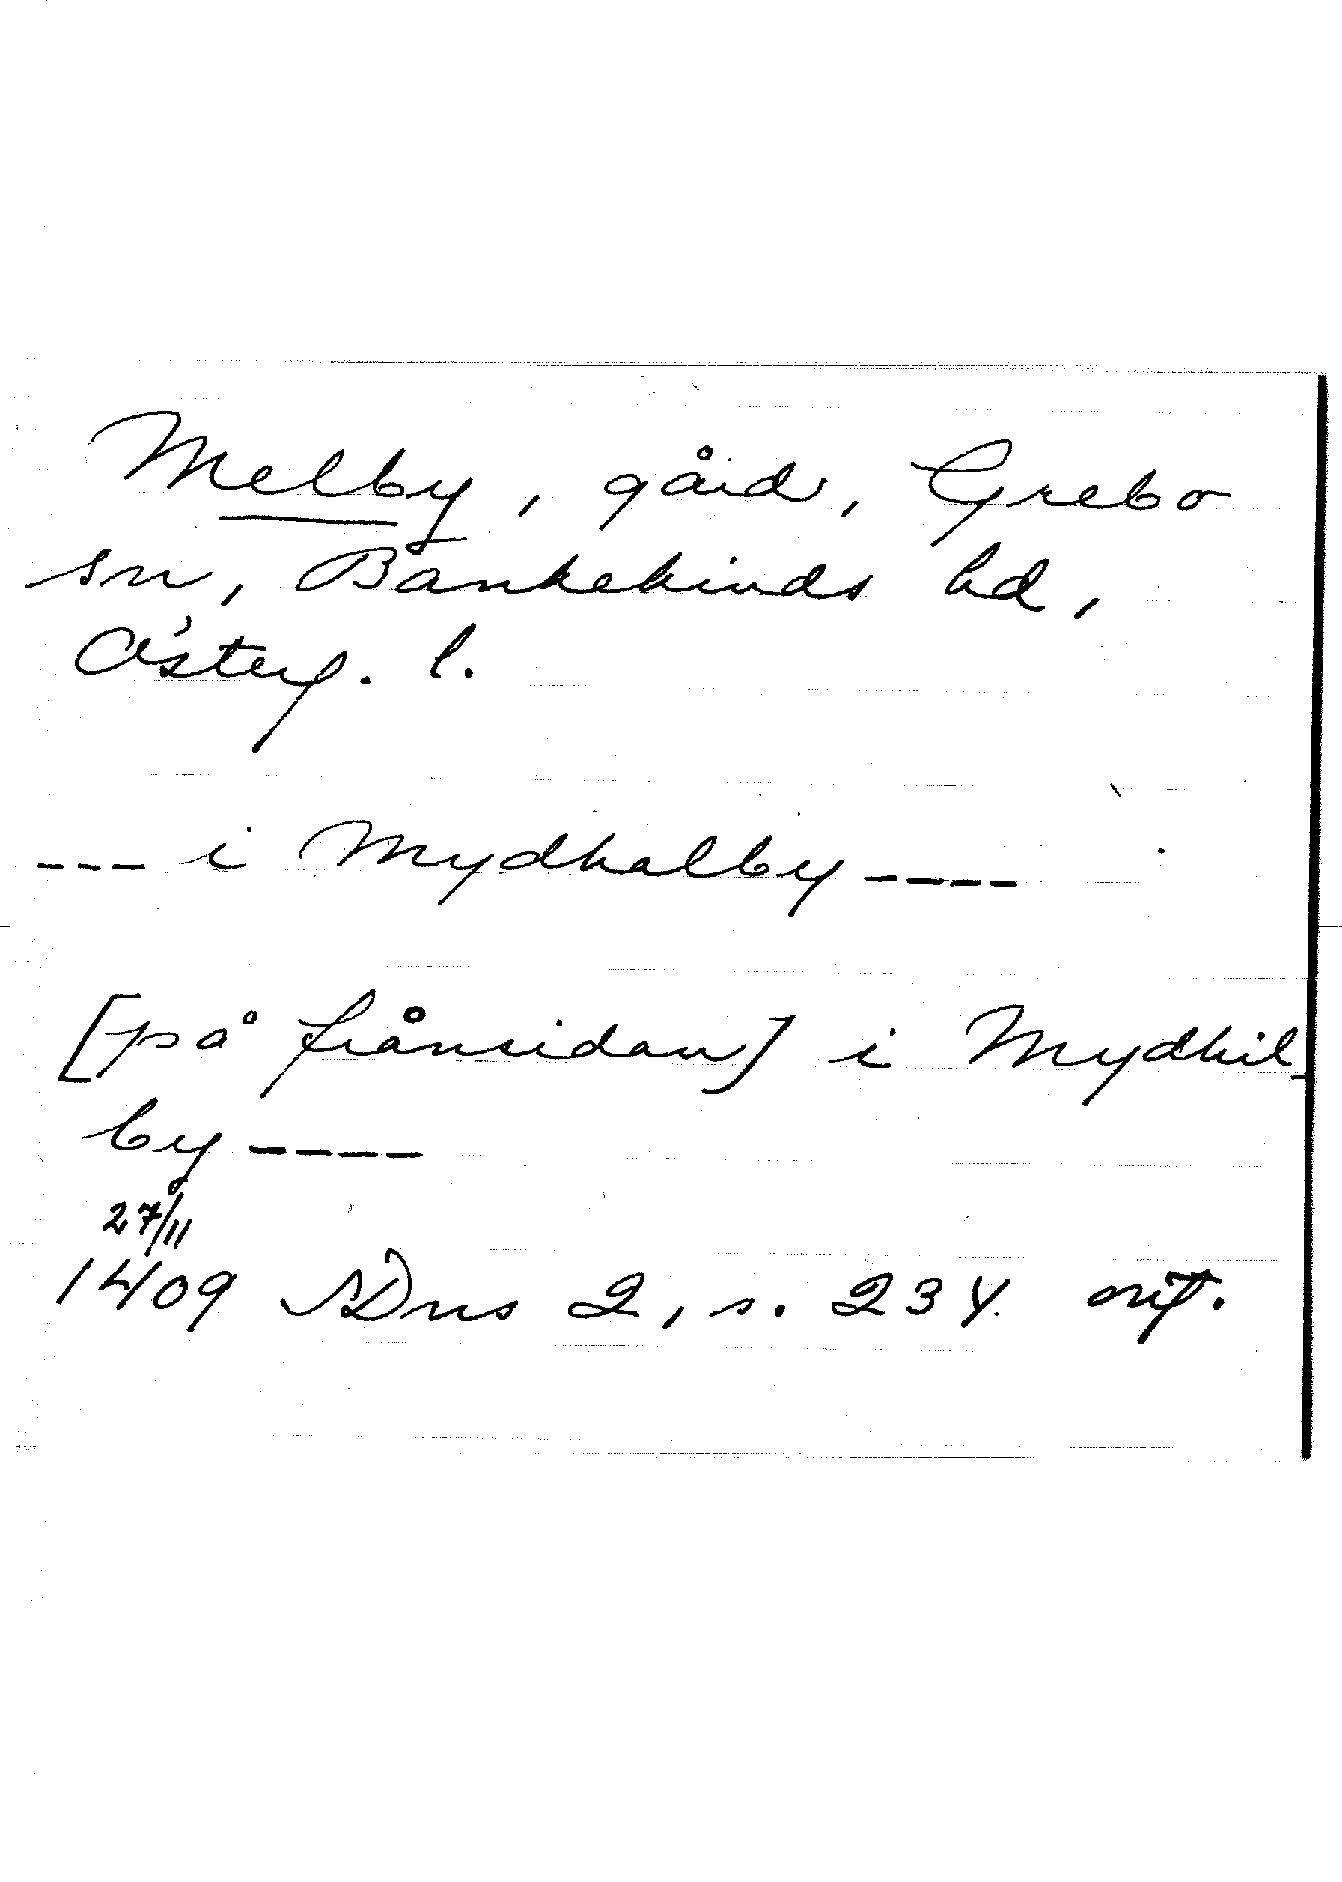 Melby, gård, Grebo
sn, Bankekinds hd,
Österg. l.
--- i Mydhalby ----
[på frånsidan] i Mydhil-
by ----
27/11
1409 SDns 2, s. 234 orig.